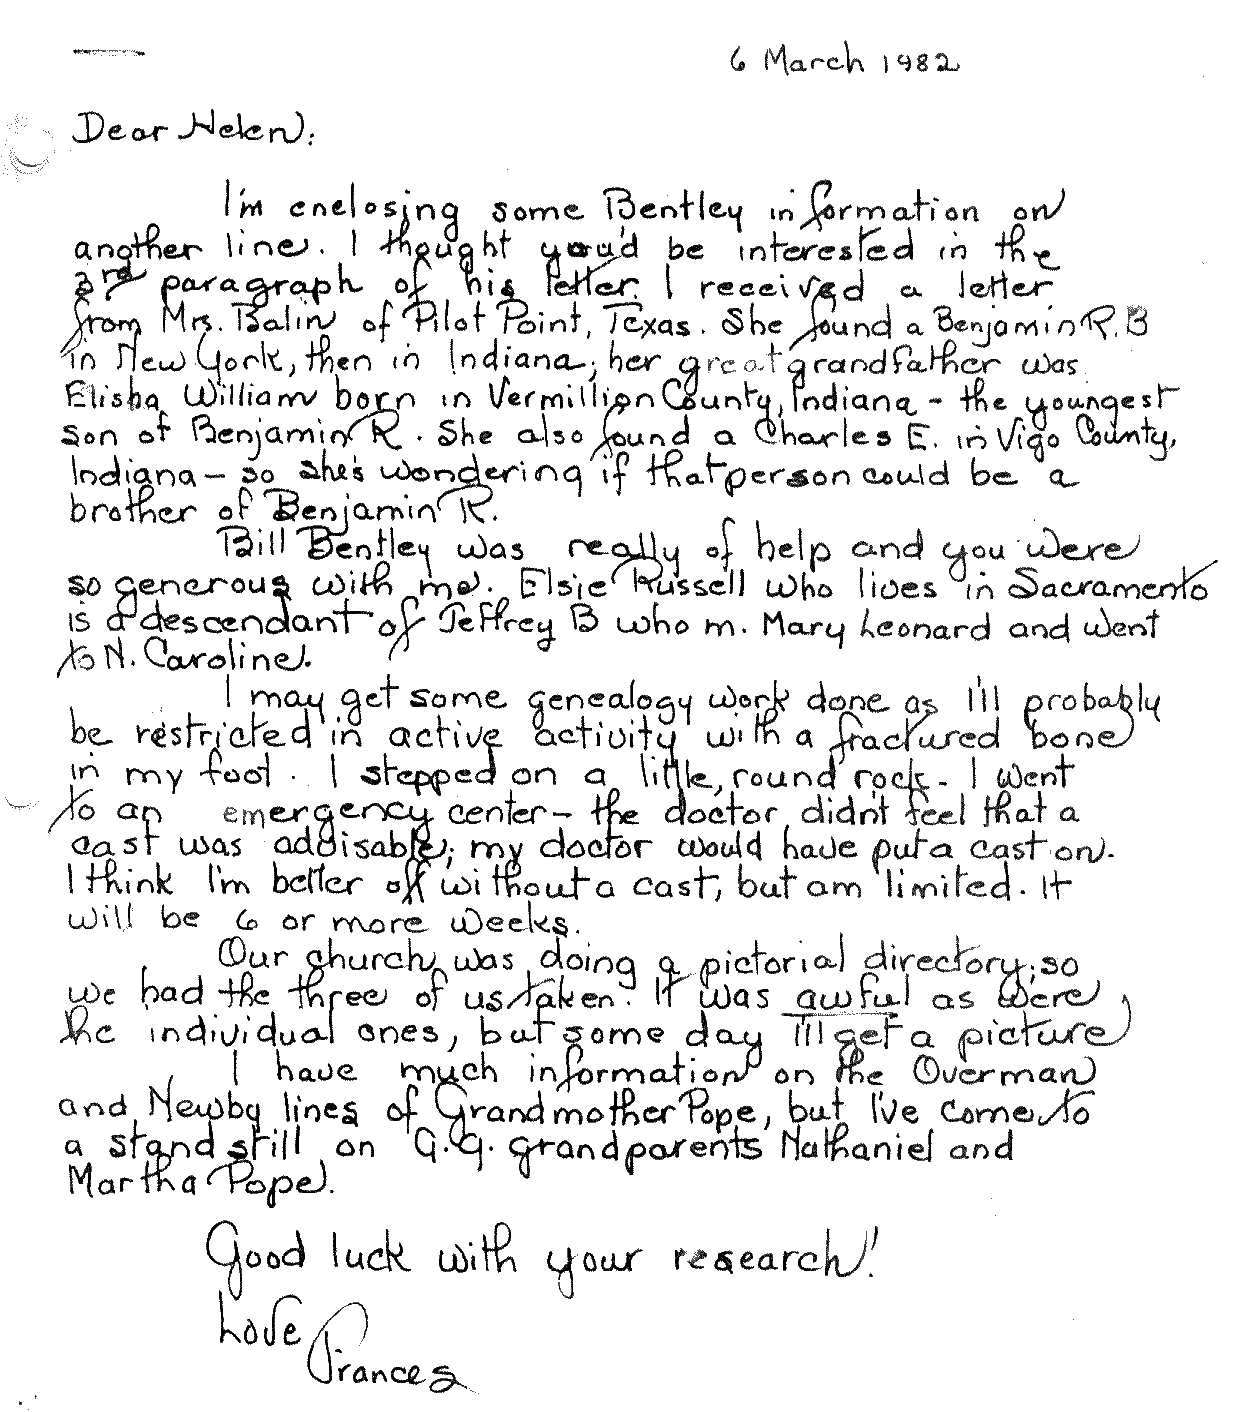 6 March 1982
Dear Helen:
I'm enclosing some Bentley information on
another line. I thought you'd be interested in the
3rd paragraph of his letter. I received a letter
from Mrs. Balin of Pilot Point, Texas. She found a Benjamin R. B
in New York, then in Indiana; her great grandfather was
Elisha William born in Vermillion County, Indiana - the youngest
son of Benjamin R. She also found a Charles E. in Vigo County,
Indiana - so she's wondering if that person could be a
brother of Benjamin R.
Bill Bentley was really of help and you were
so generous with me. Elsie Russell who lives in Sacramento
is a descendant of Jeffrey B who m. Mary Leonard and went
to N. Caroline.
I may get some genealogy work done as I'll probably
be restricted in active activity with a fractured bone
in my foot. I stepped on a little, round rock - I went
to an emergency center - the doctor didn't feel that a
cast was addisable; my doctor would have put a cast on.
I think I'm better off without a cast, but am limited. It
will be 6 or more weeks.
Our church was doing a pictorial directory; so
we had the three of us taken. It was awful as were
he individual ones, but some day I'll get a picture
I have much information on the Overman
and Newby lines of Grandmother Pope, but I've come to
a stand still on G.G. grandparents Nathaniel and
Martha Pope.
Good luck with your research!
Love
Frances